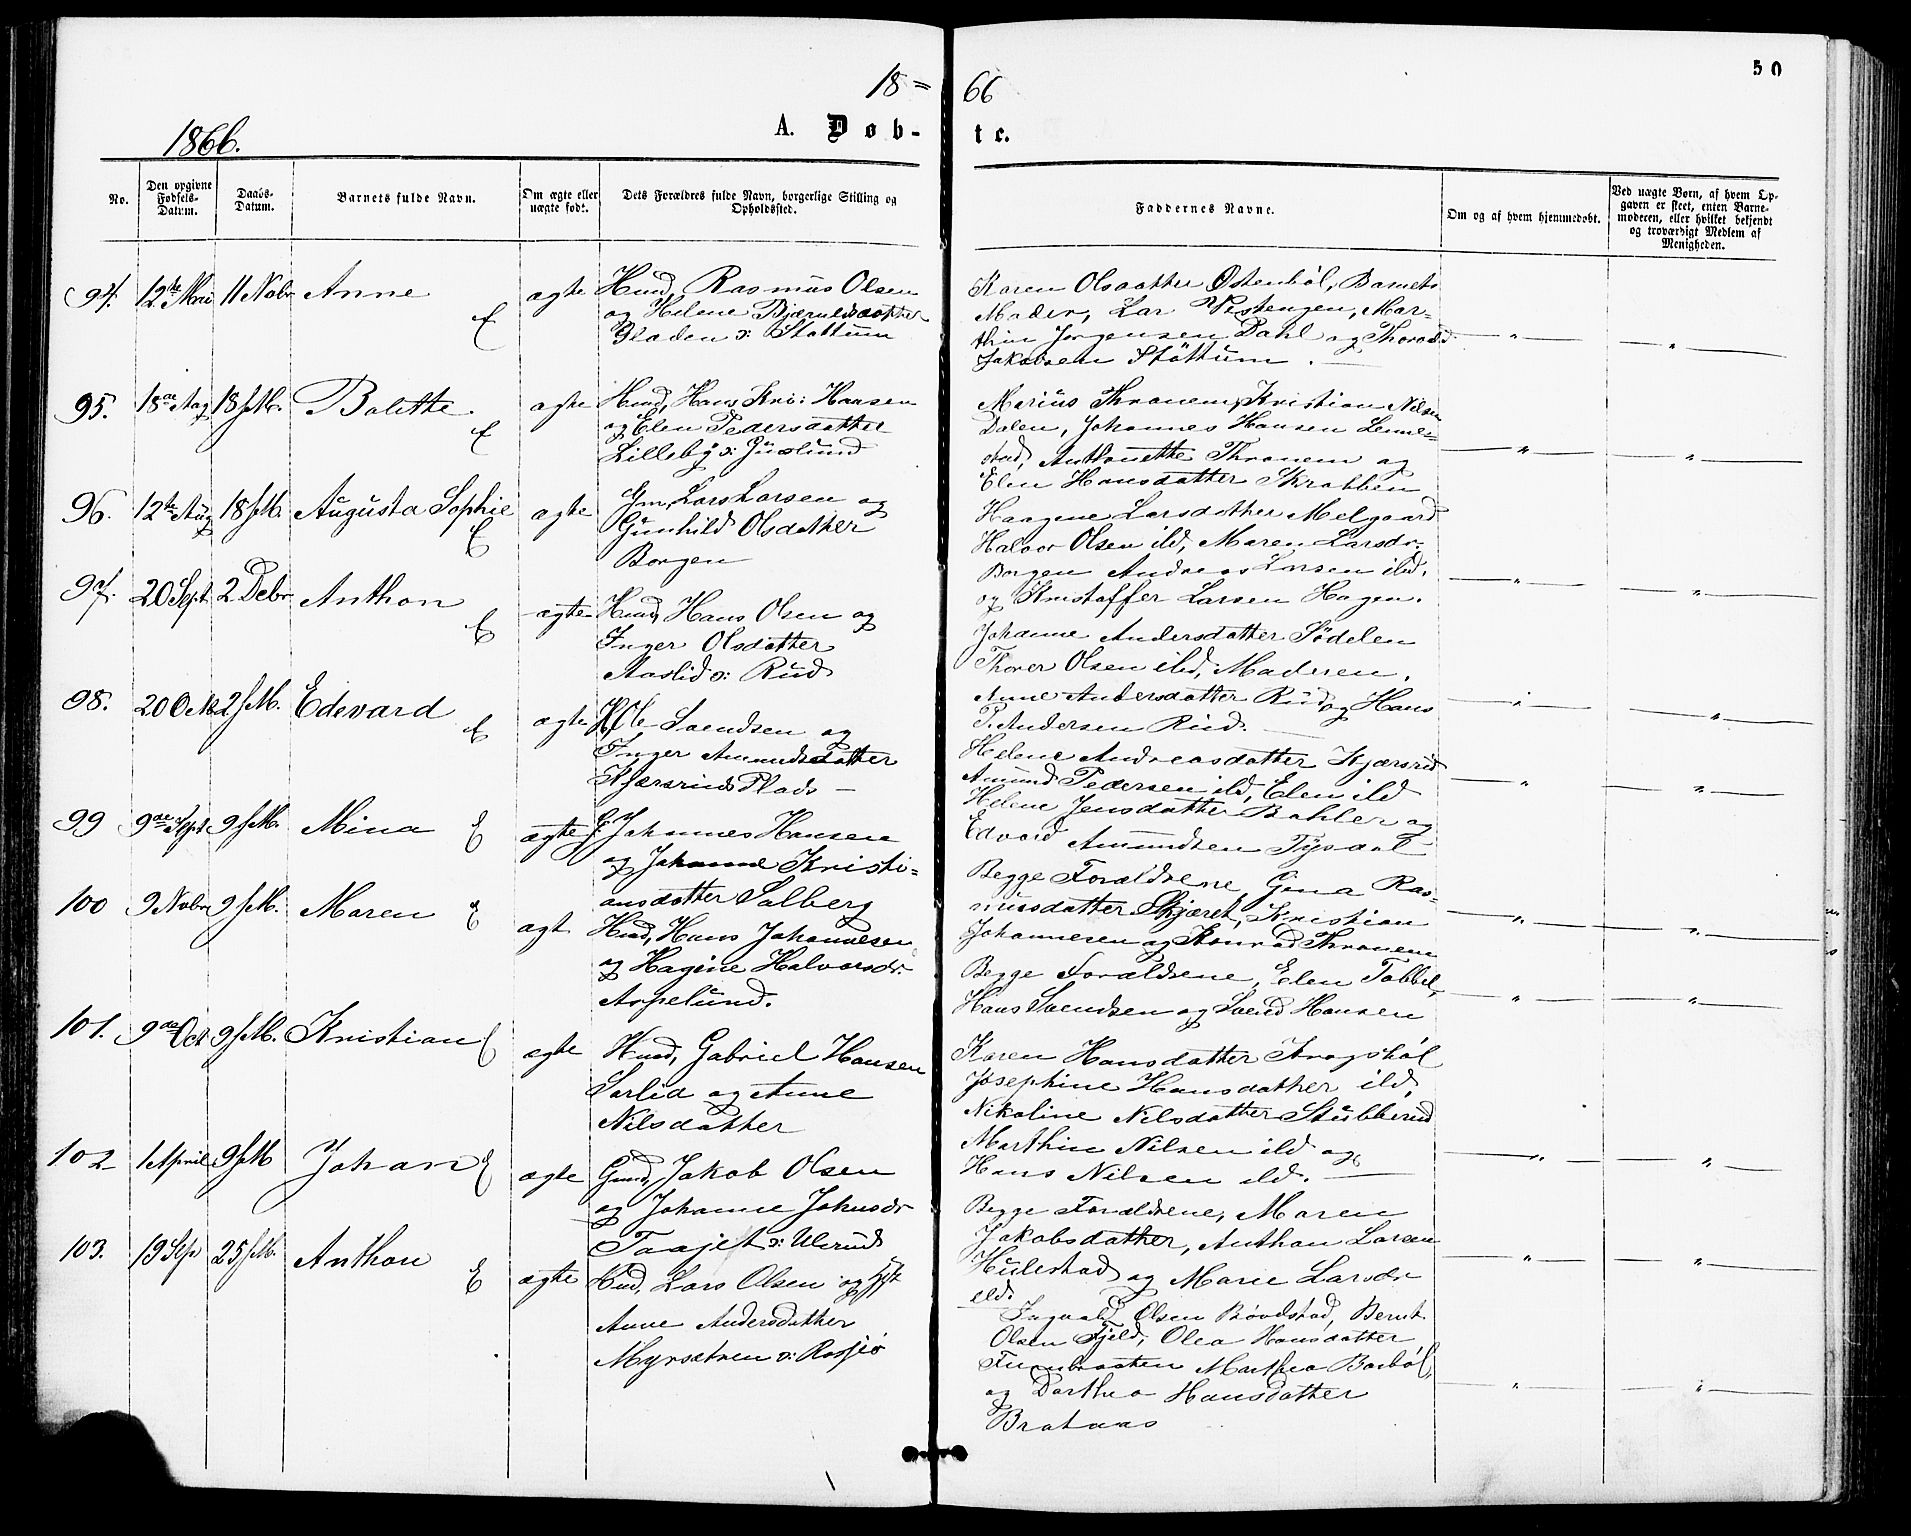 50
18 = 66
1866.
A. Døb- te.
No.
Den opgivne Fødsels-Datum.
Daabs-Datum.
Barnets fulde Navn.
Om ægte eller uægte født.
Dets Forældres fulde Navn, borgerlige Stilling og Opholdssted.
Faddernes Navne.
Om og af hvem hjemmedøbt.
Ved uægte Børn, af hvem Opgaven er skeet, enten Barnemoderen, eller hvilket bekjendt og troværdigt Medlem af Menigheden.
94. 11 Nobr Anne ægte Husd, Rasmus Olsen
og Helene
Pladen o: Støttum
Karen Olsdatter Østenböl, Barnets
Moder, Lar Vestengen, Mar-
thin Jørgensen Dahl og
Jakobsen Støttum.
95. 18de Aug 18 s.M. Bolette ægte Husd, Hans Kri: Hansen
og Elen Pedersdatter
Lilleby o: Juslund
Marius Thronem, Kristian Nilsen
Dalen, Johannes Hansen Lenne-
stad, Anthonette Thronem og
Elen Hansdatter Skrabben
96. 12te Aug 18 s.M. Augusta Sophie ægte Gm. Lars Larsen og
Gunhild Olsdatter
Borgen
Haagene Larsdatter Melgaard
Halvor Olsen ibd, Maren Larsdr.
Borgen Andreas Larsen ibd.
og Kristoffer Larsen Hagen.
97. 20 Sept 2 Debr Anthon ægte Husd, Hans Olsen og
Inger Olsdatter
Aaslid o: Rud
Johanne Andersdatter Södelen
Thorer Olsen ibd, Moderen,
Anne Andersdatter Rud og Hans
P. Andersen Rud.
98. 20 Okt 2 s.M. Edevard ægte Ole Svendsen og
Inger Amundsdatter
Kjærsrud Plads
Helene Andreasdatter Kjærsrud
Amund Pedersen ibd, Elen ibd
Helene Jensdatter Bahler og
Edvard Amundsen
99 9de Sept 9 s.M. Mina ægte Johannes Hansen
og Johanne Kristi-
ansdatter Solberg
Begge Forældrene, Gina Ras-
musdatter Skjæret, Kristian
Johannesen og Konrad Thronem
100 9 Nobr 9 s.M. Maren ægt Husd, Hans Johannesen
og Hagine Halvorsdr.
Aspelund.
Begge Forældrene, Elen Tobbel,
Hans Svendsen og Svend Hansen
101. 9de Oct 9 s.M. Kristian ægte Husd, Gabriel Hansen
Sorlid og Anne
Nilsdatter
Karen Hansdatter Kragsböl
Josephine Hansdatter ibd,
Nikoline Nilsdatter Stubberud
Marthin Nilsen ibd og
Hans Nilsen ibd.
102 1 April 9 s.M Johan ægte Gmd, Jakob Olsen
og Johanne Johnsdr
Taajet o: Ulerud
Begge Forældrene, Maren
Jakobsdatter, Anthon Larsen
Hulestad og Marie Larsdr
ibd.
103. 19 Sep 25 s.M. Anthon ægte Husd, Lars Olsen og
Anne Andersdatter
Myrsætren o: Rasjø
Ingvald Olsen Bøvelstad, Bernt
Olsen Fjeld, Olea Hansdatter
Furubraaten Marthea Bærböl,
og Dorthea Hansdatter
Brataas